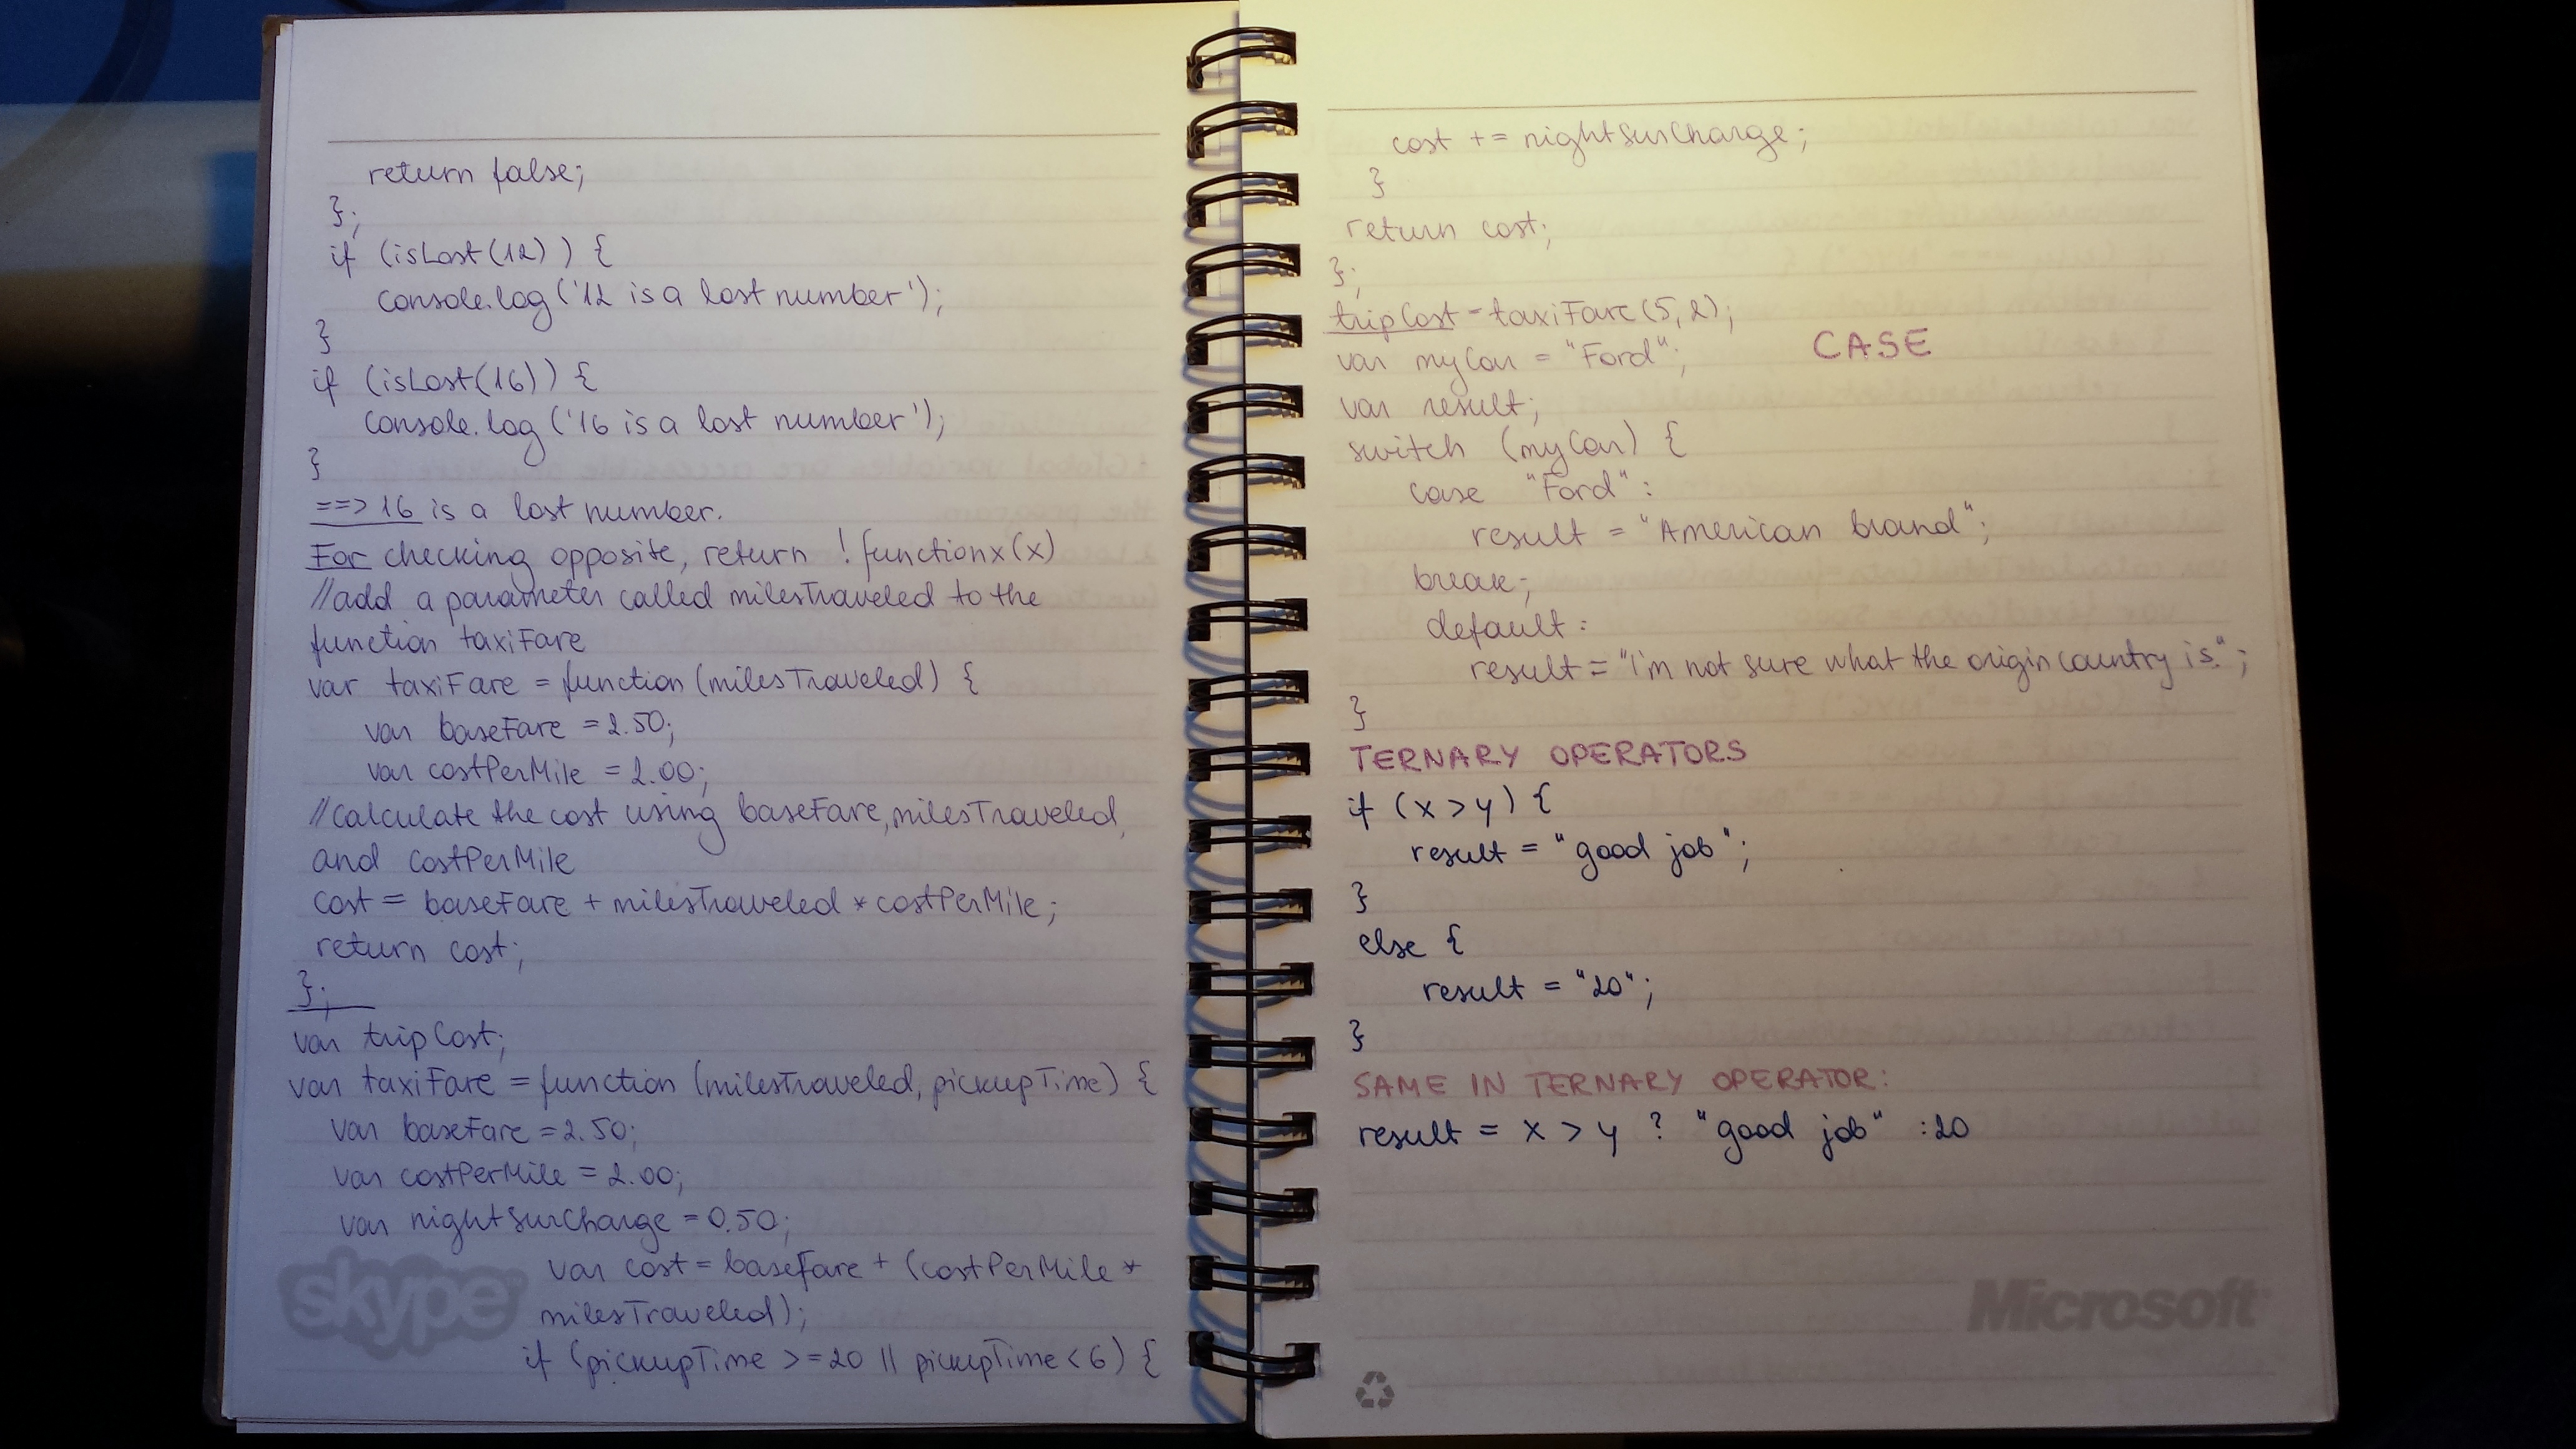 return false;
};
if (isLost(12)) {
console.log('12 is a lost number');
}
if (isLost(16)) {
console.log('16 is a lost number');
}
==>16 is a lost number.
For checking opposite, return !functionx(x)
//add a parameter called milesTraveled to the
function taxiFare
var taxiFare = function (milesTraveled) {
var baseFare = 2.50;
var costPerMile = 2.00;
//Calculate the cost using baseFare, milesTraveled,
and costPerMile
cost = baseFare + milesTraveled * costPerMile;
return cost;
};
var tripCost;
var taxiFare = function (milesTraveled, pickupTime) {
var baseFare = 2.50;
var costPerMile = 2.00;
var nightSurCharge = 0.50;
var cost = baseFare + (costPerMile *
milesTraveled);
if (pickupTime >= 20 || pickupTime < 6) {
skype
cost += nightSurCharge;
}
return cost;
};
tripCost = taxiFare (5, 2);
CASE
var myCar = "Ford";
var result;
switch (myCar) {
case "Ford":
result = "American brand";
break;
default:
result = "I'm not sure what the origin country is.";
}
TERNARY OPERATORS
if (x > y) {
result = "good job";
}
else {
result = "20";
}
SAME IN TERNARY OPERATOR:
result = x > y ? "good job" : 20
Microsoft